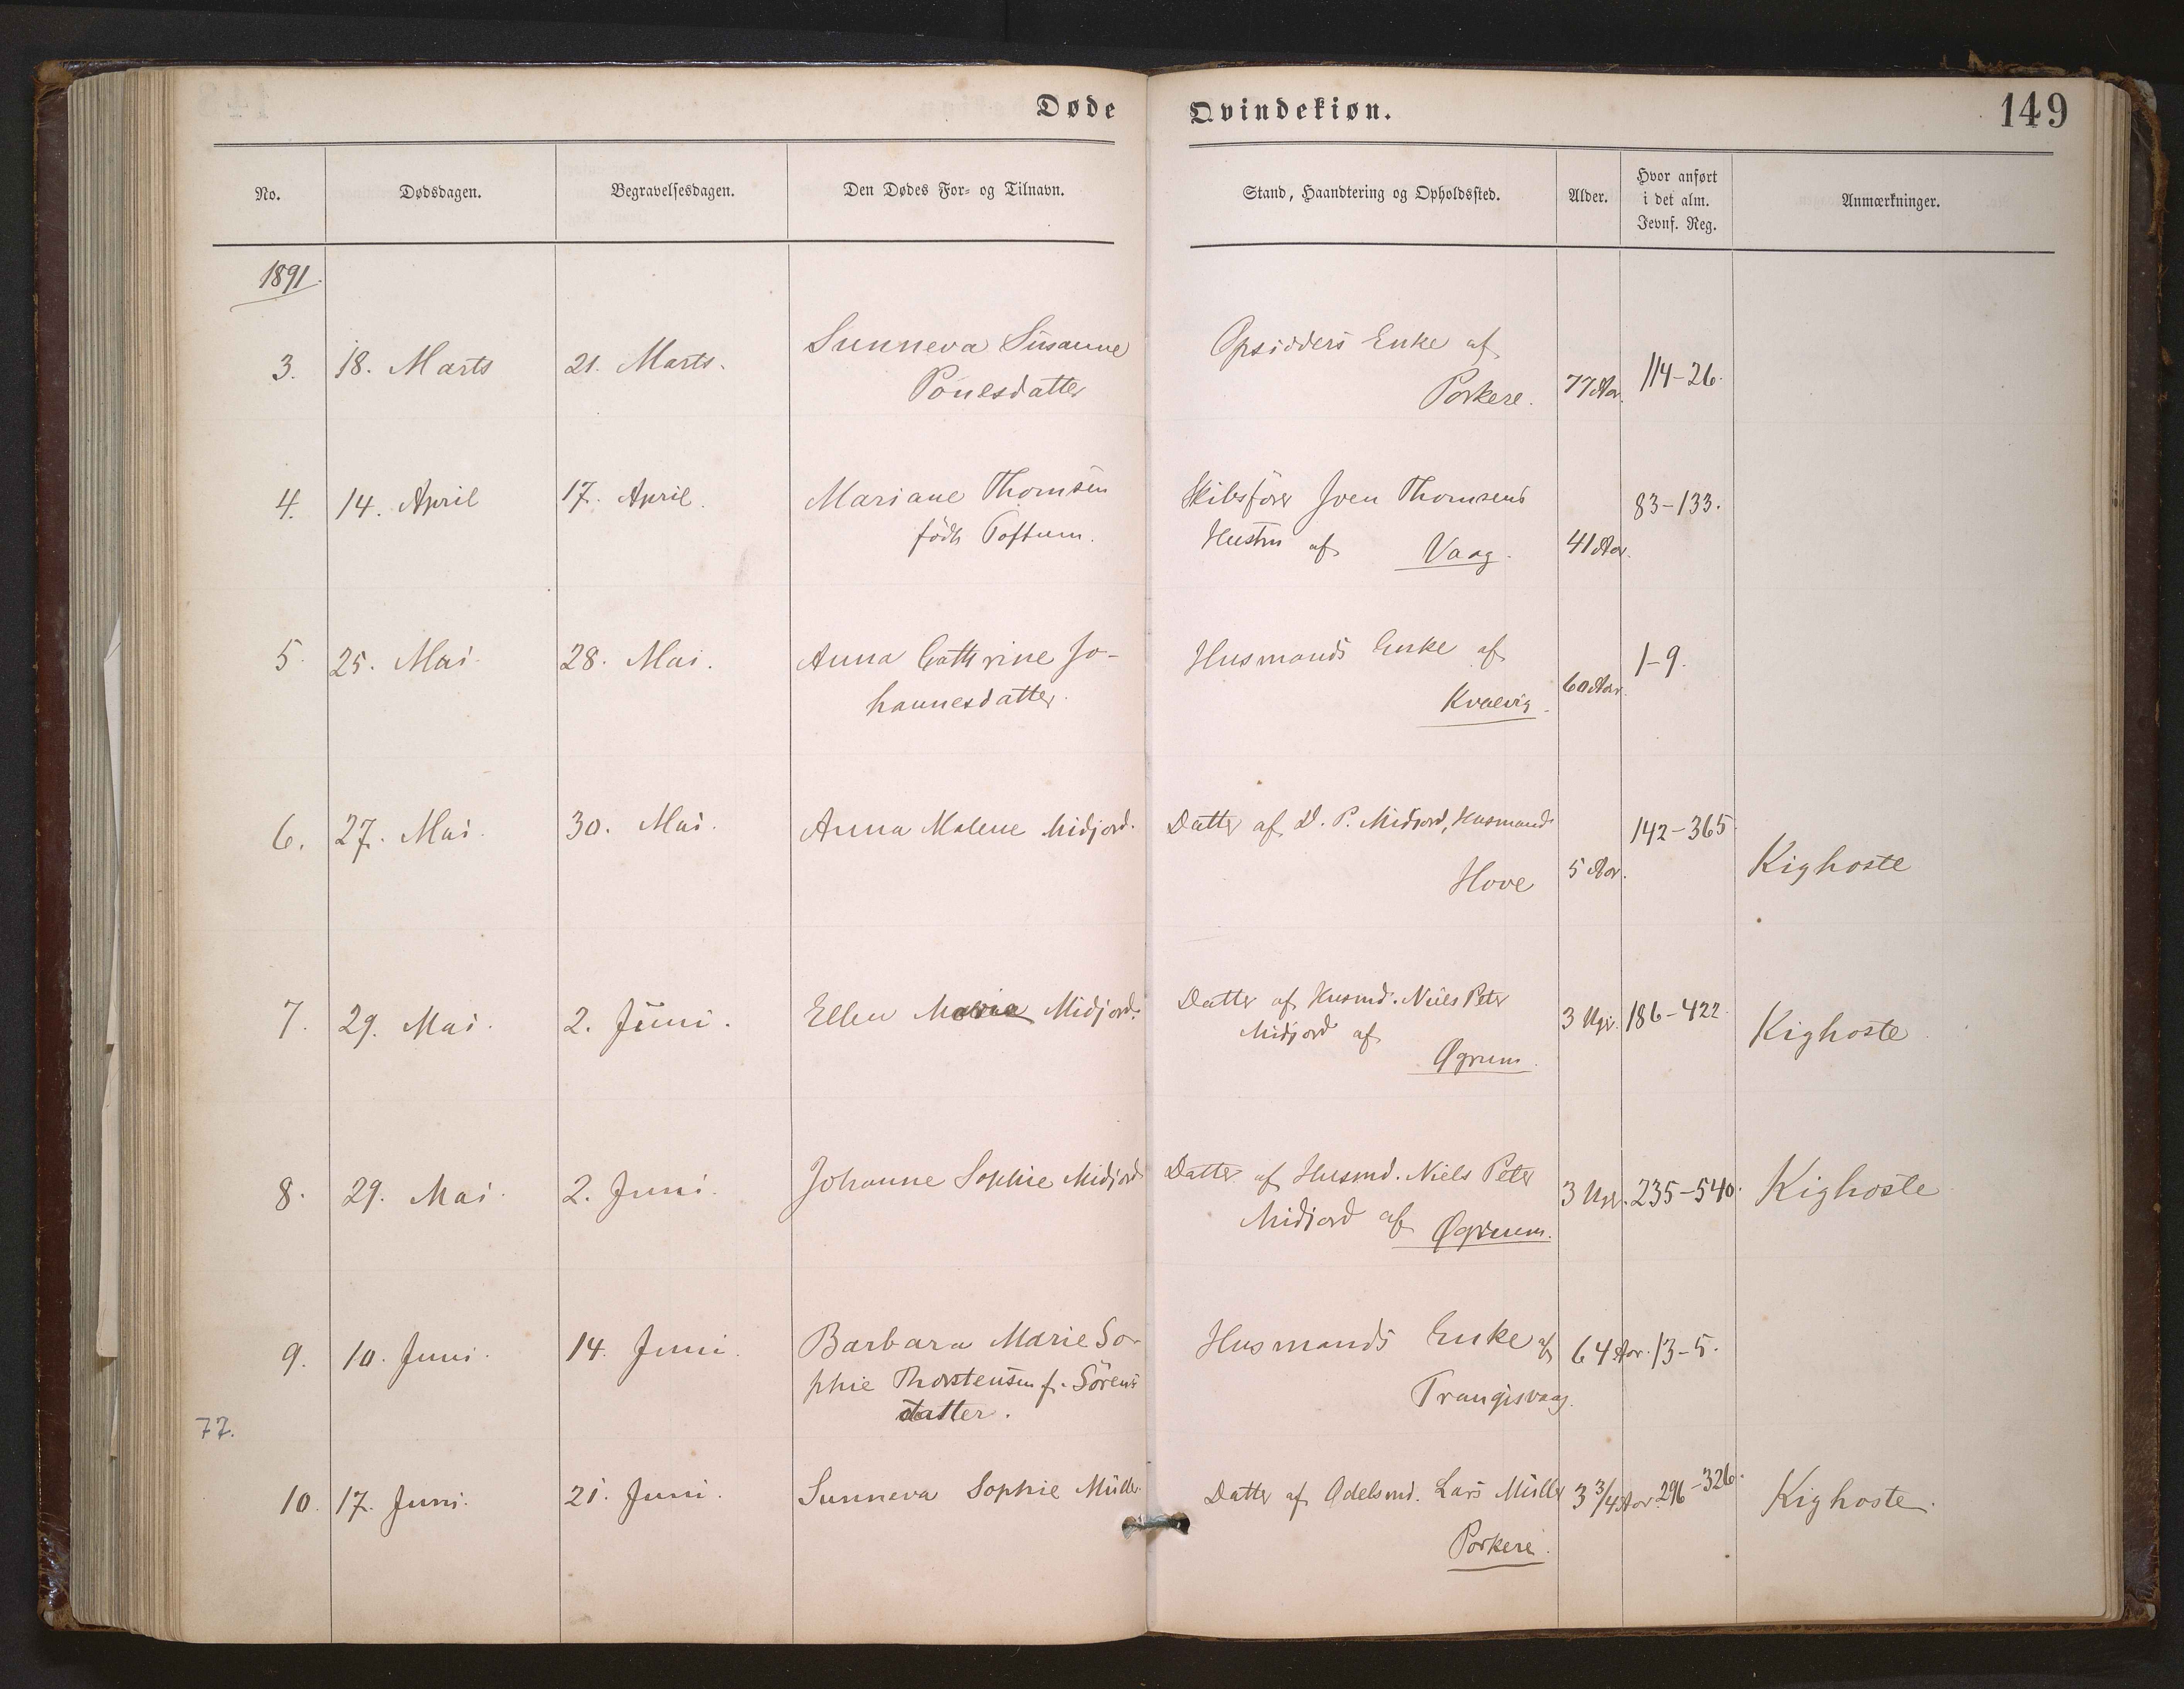 Døde Qvindekiøn. 149
No. Dødsdagen. Begravelsesdagen. Den Dødes For- og Tilnavn. Stand, Haandtering og Opholdssted. Alder. Hvor anført i det alm. Jevnf. Reg. Anmærkninger.
1891.
3. 18. Marts 21. Marts. Sunneva Susanne Opsidders Enke af 114-26.
Poulesdatter Porkere. 77 Aar.
4. 14. April 17. April. Mariane Thomsen Skibsfører Sven Thomsens 83-133.
födt Toftum. Hustru af Vaag. 41 Aar.
5. 25. Mai 28. Mai. Anna Cathrine Jo- Husmands Enke af 1-9.
hannesdatter. Kvalvig. 60 Aar.
6. 27. Mai. 30. Mai. Anna Malene Midjord. Datter af D. P. Midjord, Husmand 142-365.
Hove 5 Aar. Kighoste
7. 29. Mai. 2. Juni. Ellen Maria Midjord. Datter af Husmd. Niels Peter 3 Uger. 186-422. Kighoste
Midjord af
Øgrum.
8. 29. Mai. 2. Juni. Johanne Sophie Midjord Datter af Husmd. Niels Peter 3 Uger. 235-540. Kighoste
Midjord af Øgrum.
9. 10. Juni. 14. Juni. Barbara Marie So- Husmands Enke af 64 Aar. 13-5.
phie Thorstensen f. Sörens Trangisvaag.
datter.
77.
10. 17. Juni. 21. Juni. Sunneva Sophie Müller Datter af Odelsmd. Lars Müller 3 3/4 Aar. 296-326. Kighoste.
Porkere.